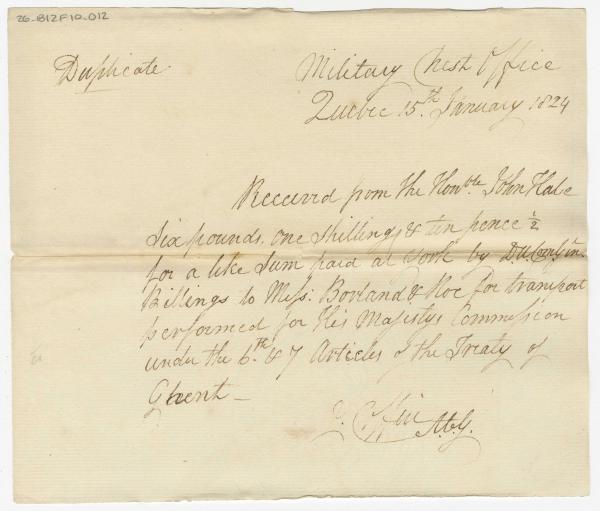 26-B12F10-012
Duplicate.
Military Chest Office
Quebec 15th January 1824
Received from the Honble John Hale
Six pounds. one shillings & ten pence ½
for a like Sum paid at York by
Billings to Messr. Borland & Roe for transport
performed for His Majestys Commission
under the 6th & 7 Articles of the Treaty of
Ghent —
Coffin